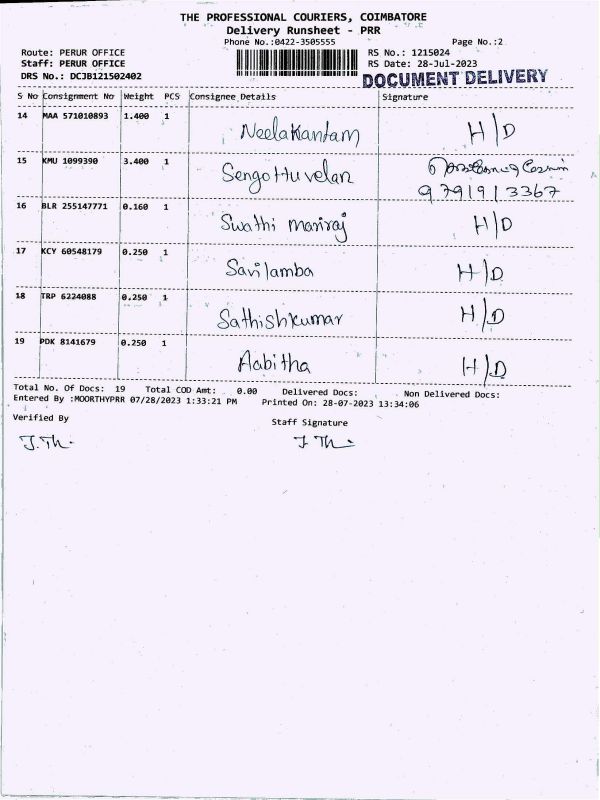 THE PROFESSIONAL COURIERS, COIMBATORE
Delivery Runsheet - PRR
Phone No.:0422-3505555 Page No.:2
Route: PERUR OFFICE RS No.: 1215024
Staff: PERUR OFFICE RS Date: 28-Jul-2023
DRS No.: DCJB121502402 DOCUMENT DELIVERY
S No Consignment No Weight PCS Consignee Details Signature
14 MAA 571010893 1.400 1 Neelakantam H/D
15 KMU 1099390 3.400 1 Sengottuvelan
9791913367
16 BLR 255147771 0.160 1 Swathi maniraj H/D
17 KCY 60548179 0.250 1 Savilamba H/D
18 TRP 6224088 0.250 1 Sathishkumar H/D
19 PDK 8141679 0.250 1 Aabitha H/D
Total No. Of Docs: 19 Total COD Amt: 0.00 Delivered Docs: Non Delivered Docs:
Entered By :MOORTHYPRR 07/28/2023 1:33:21 PM Printed On: 28-07-2023 13:34:06
Verified By Staff Signature
J.Th. J Th.